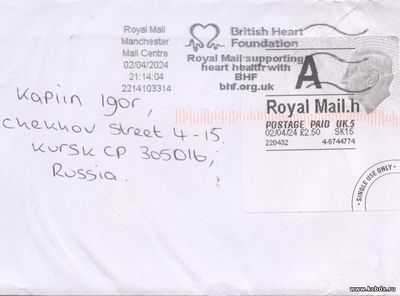 Royal Mail
Manchester
Mail Centre
02/04/2024
21:14:04
2214103314
British Heart
Foundation
Royal Mail supporting
heart health with
BHF
bhf.org.uk
A
Royal Mail.h
POSTAGE PAID UK5
02/04/24 £2.50 SK16
220432 4-6744774
• SINGLE USE ONLY •
Kapiin Igor,
Chekhov Street 4-15
Kursk CP 305016,
Russia.
www.kobdx.ru